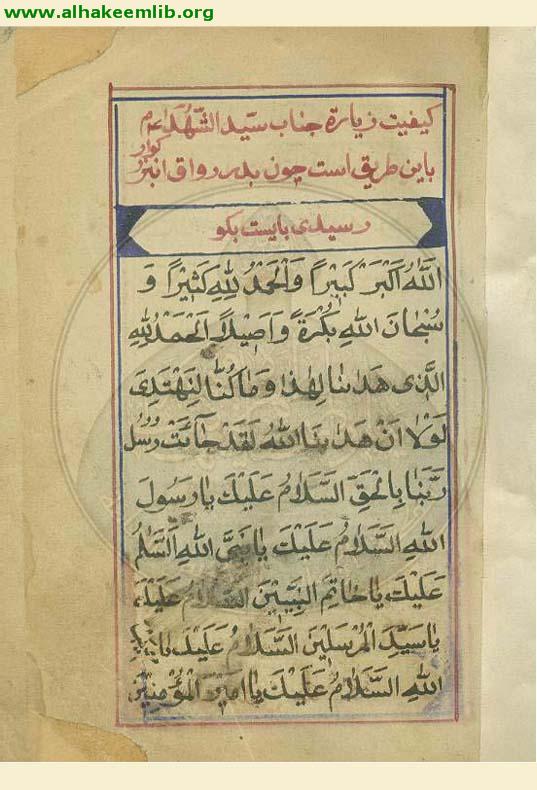 www.alhakeemlib.org
کیفیت زیارة جناب سیّد الشّهداء ع م
باین طریق است چون بدر رواق انبزرکوار
رسیدی بایست بکو
اَللّٰهُ اَکْبَرُ کَبیْراً وَالْحَمْدُ لِلّٰهِ کَثیْراً وَ
سُبْحٰانَ اللّٰهِ بُکْرَةً وَاَصیْلاً اَلْحَمْدُ لِلّٰهِ
الَّذی هَدٰینٰا لِهٰذٰا وَمٰا کُنّٰا لِنَهْتَدِیَ
لَوْلٰا اَنْ هَدٰینَا اللّٰهُ لَقَدْ جٰآءَتْ رُسُلُ
رَبِّنٰا بِالْحَقِّ اَلسَّلٰامُ عَلَیْکَ یٰا رَسُولَ
اللّٰهِ اَلسَّلٰامُ عَلَیْکَ یٰا نَبِیَّ اللّٰهِ اَلسَّلٰمُ
عَلَیْکَ یٰا خٰاتِمَ النَّبِیّیْنَ اَلسَّلٰامُ عَلَیْکَ
یٰا سَیِّدَ الْمُرْسَلیْنَ اَلسَّلٰامُ عَلَیْکَ یٰا
اللّٰهِ اَلسَّلٰامُ عَلَیْکَ یٰا اَمیْرَ الْمُؤْمِنیْنَ